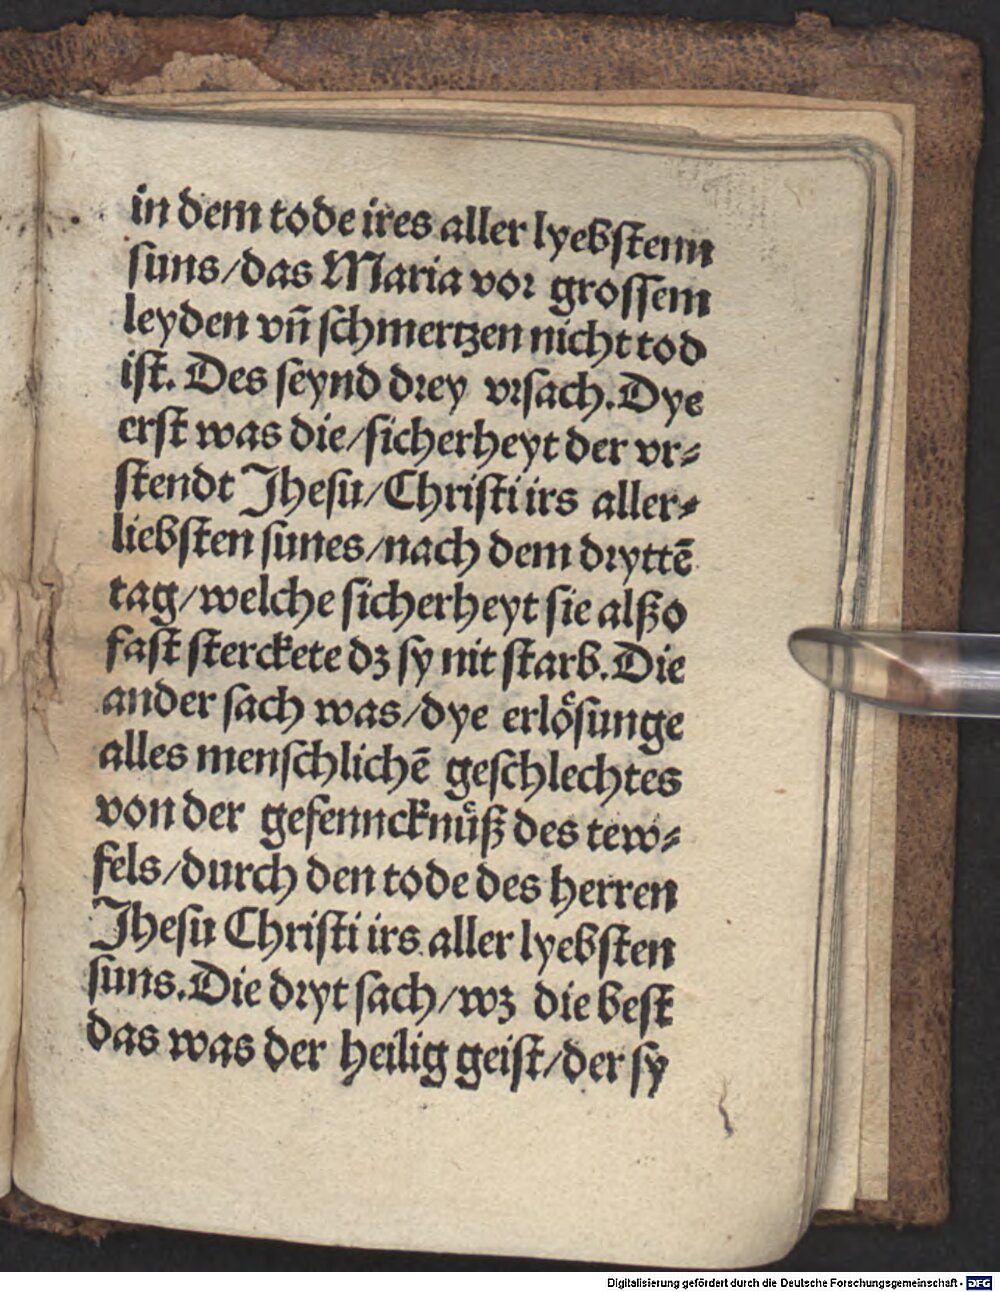 in dem tode ires aller lyebſtenn
ſuns/das Maria vor groſſem
leyden vn̄ ſchmertzen nicht tod
iſt. Des ſeynd drey vrſach. Dye
erſt was die/ſicherheyt der vr⸗
ſtendt Jheſu/Chriſti irs aller⸗
liebſten ſunes/nach dem dryttē
tag/welche ſicherheyt ſie alſzo
faſt ſterckete dʒ ſy nit ſtarb. Die
ander ſach was/dye erlöſunge
alles menſchlichē geſchlechtes
von der gefenncknüſz des tew⸗
fels/durch den tode des herren
Jheſu Chriſti irs aller lyebſten
ſuns. Die dryt ſach/wʒ die beſt
das was der heilig geiſt/der ſy
Digitalisierung gefördert durch die Deutsche Forschungsgemeinschaft - DFG